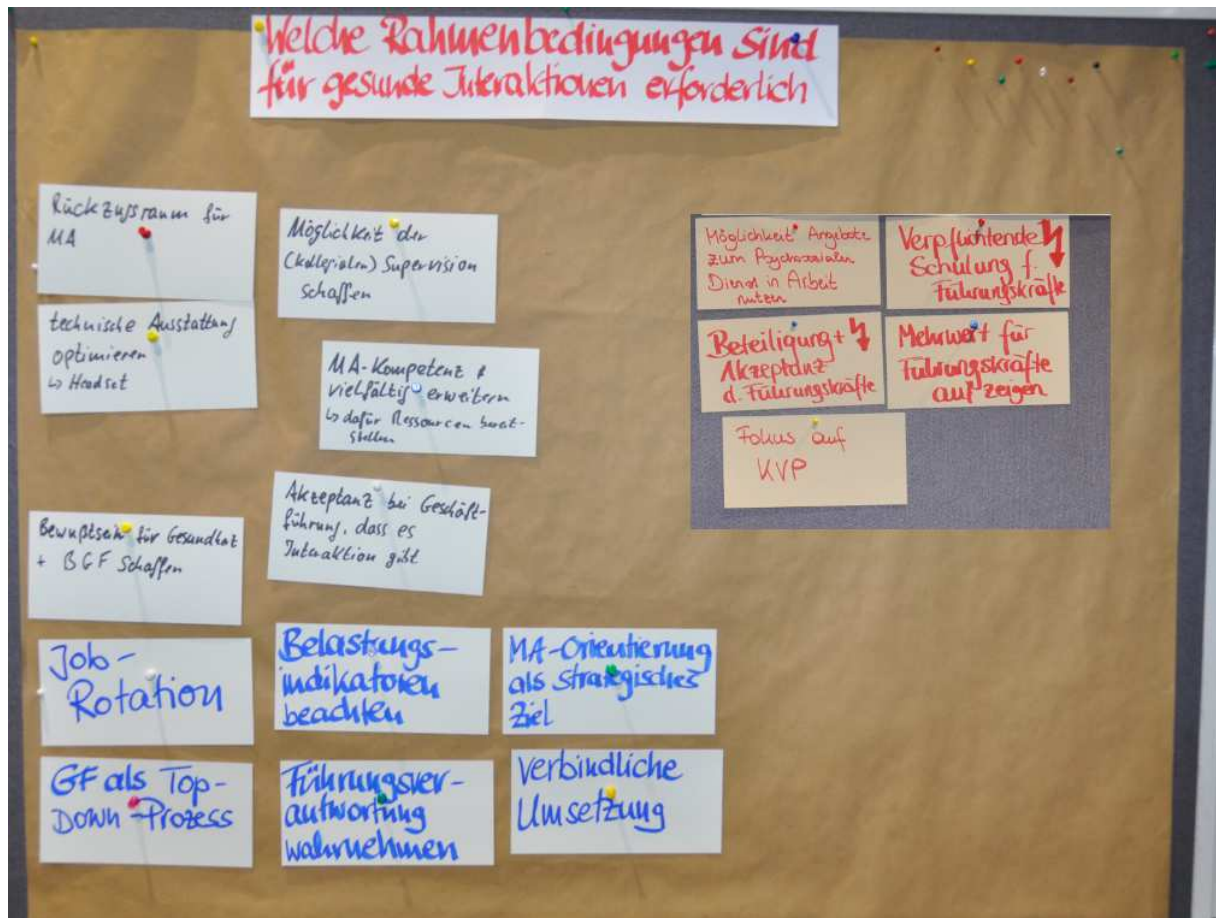 Welche Rahmenbedingungen sind
für gesunde Interaktionen erforderlich
Rückzugsraum für
MA
technische Ausstattung
optimieren
↳ Headset
Möglichkeit der
(kollegialen) Supervision
schaffen
MA-Kompetenz
vielfältig erweitern
↳ dafür Ressourcen bereit-
stellen
Akzeptanz bei Geschäft-
führung, dass es
Interaktion gibt
Bewußtsein für Gesundheit
+ BGF schaffen
Job-
Rotation
Belastungs-
indikatoren
beachten
MA-Orientierung
als strategisches
Ziel
GF als Top-
Down-Prozess
Führungsver-
antwortung
wahrnehmen
Verbindliche
Umsetzung
Möglichkeit Angebote
zum Psychosozialen
Dienst in Arbeit
nutzen
Verpflichtende
Schulung f.
Führungskräfte
Beteiligung +
Akzeptanz
d. Führungskräfte
Mehrwert für
Führungskräfte
aufzeigen
Fokus auf
KVP